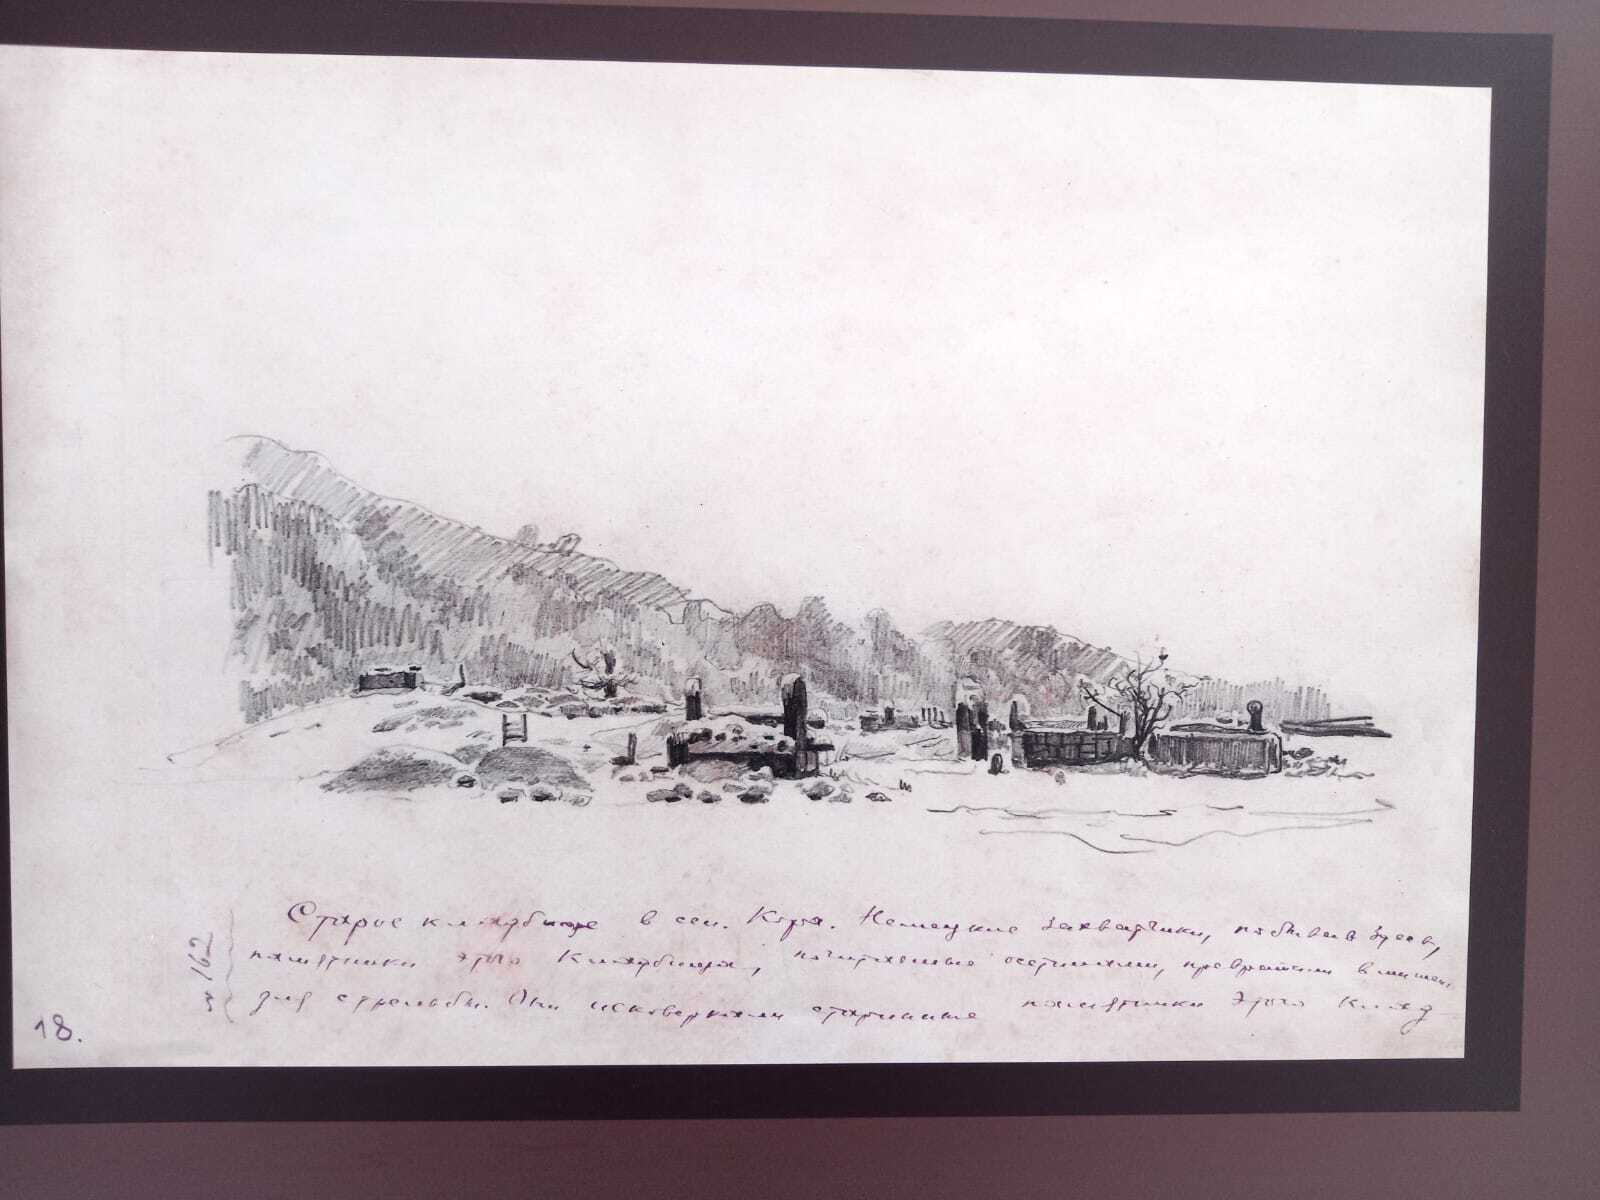 Старое кладбище в сел. Кора. Немецкие захватчики, побывав здесь,
памятники этого кладбища, почитаемые осетинами, превратили в мишень
для стрельбы. Они исковеркали старинные памятники этого клад
№ 162
18.